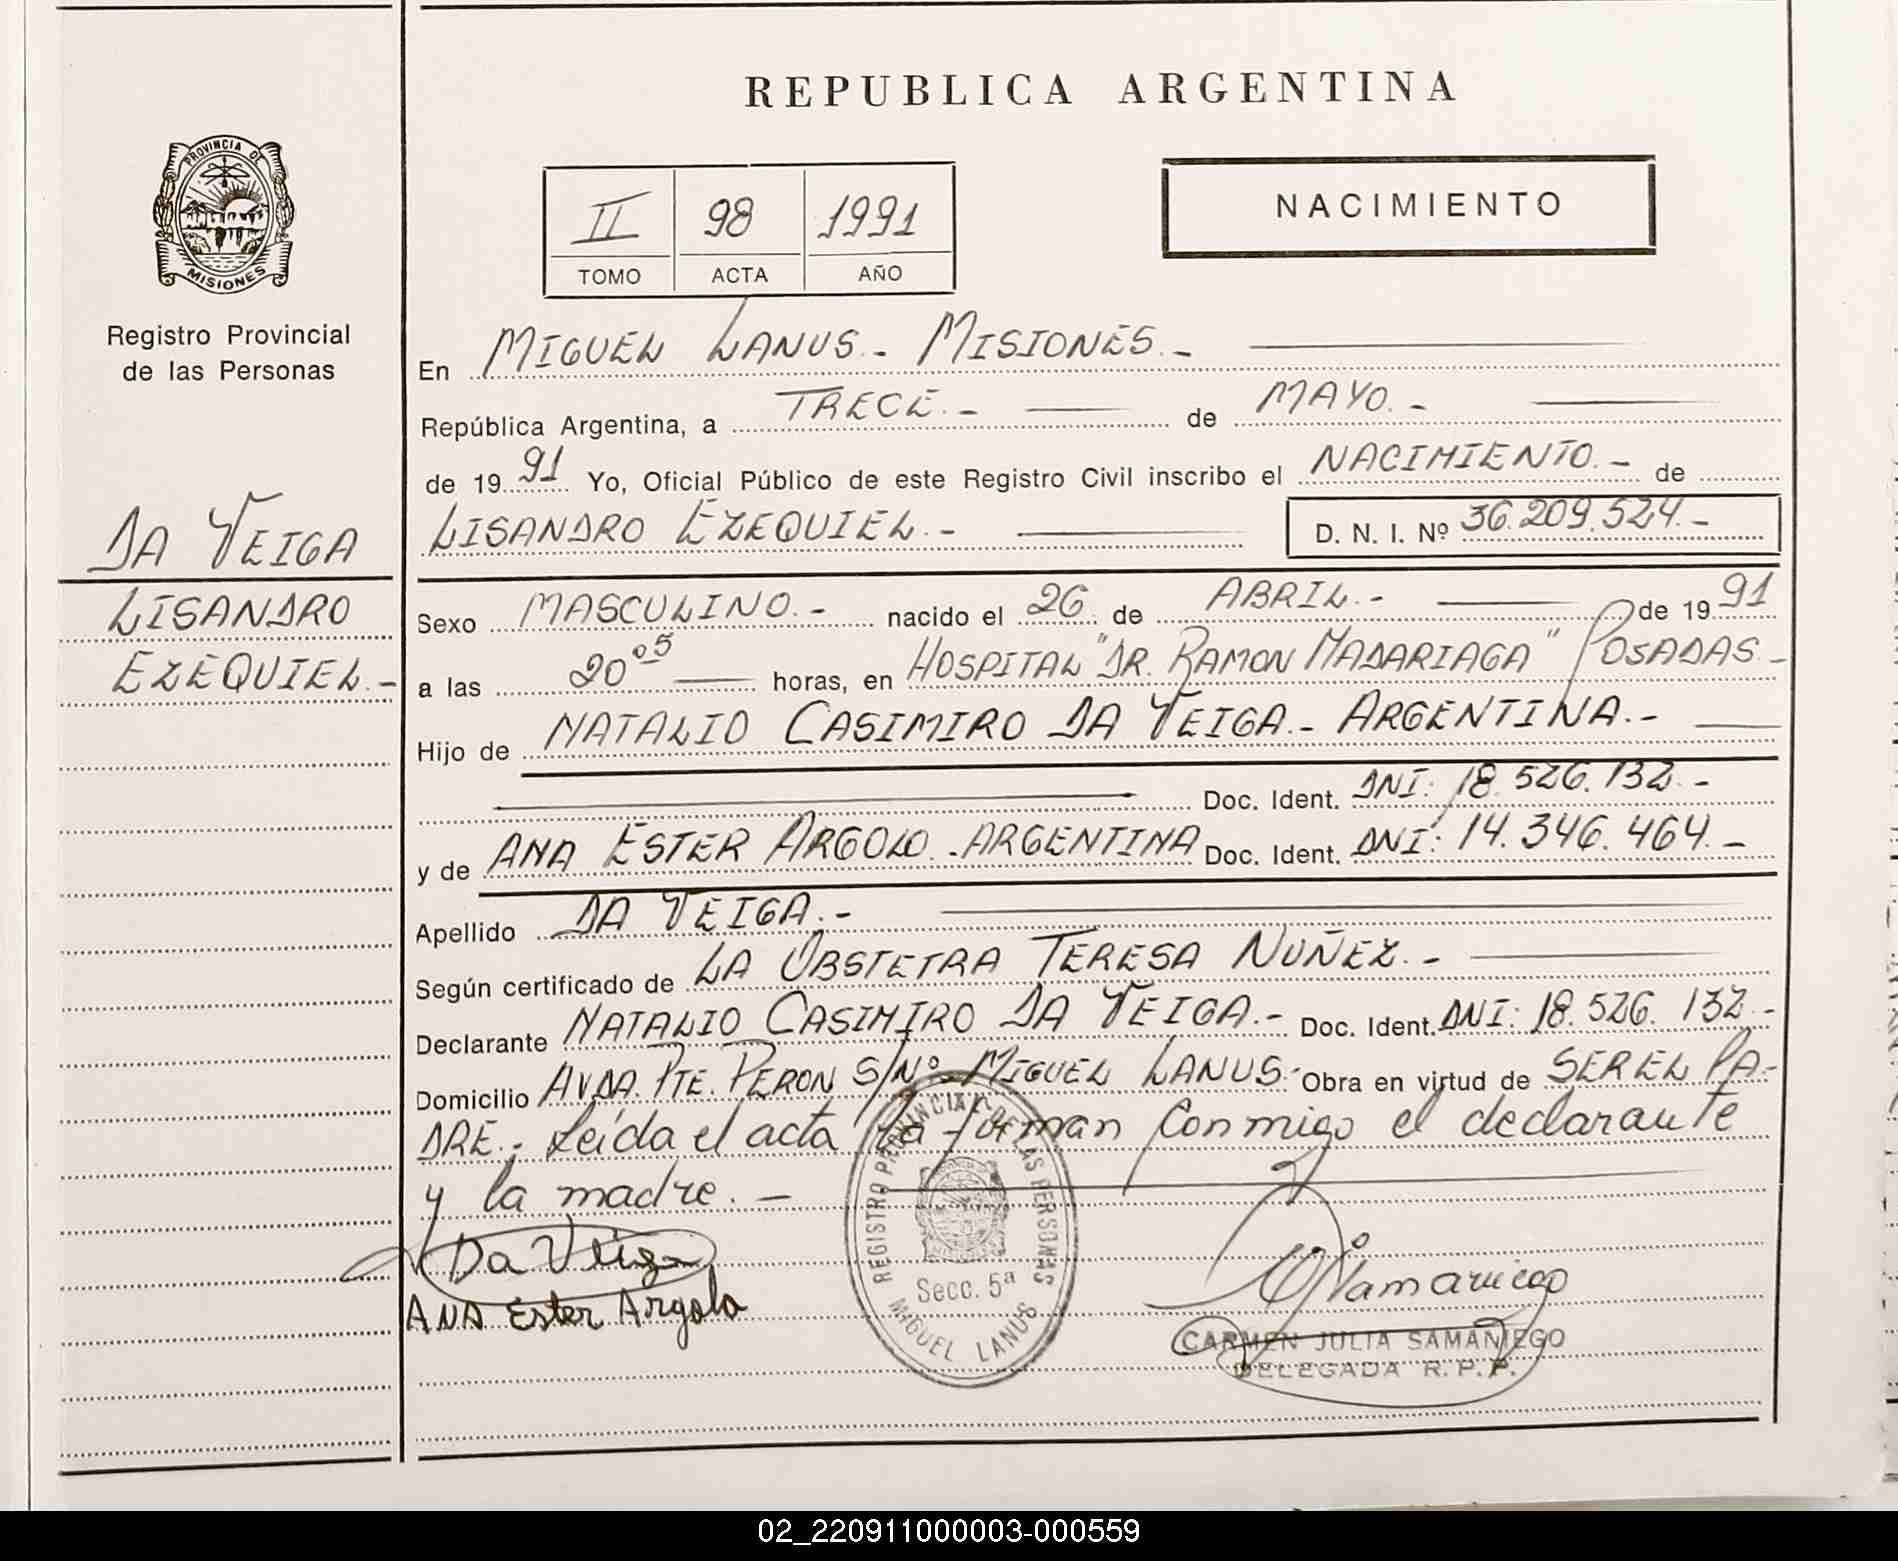 REPUBLICA ARGENTINA
PROVINCIA DE
MISIONES
Registro Provincial
de las Personas
DA VEIGA
LISANDRO
EZEQUIEL.-
II 98 1991
TOMO ACTA AÑO
NACIMIENTO
En MIGUEL LANUS.- MISIONES.-
República Argentina, a TRECE.- de MAYO.-
de 1991 Yo, Oficial Público de este Registro Civil inscribo el NACIMIENTO.- de
LISANDRO EZEQUIEL.- D. N. I. Nº 36.209.524.-
Sexo MASCULINO.- nacido el 26 de ABRIL.- de 1991
a las 20 05 horas, en HOSPITAL "DR. RAMON MADARIAGA" POSADAS.-
Hijo de NATALIO CASIMIRO DA VEIGA.- ARGENTINA.-
Doc. Ident. DNI: 18.526.132.-
y de ANA ESTER ARGOLO.-ARGENTINA Doc. Ident. DNI: 14.346.464.-
Apellido DA VEIGA.-
Según certificado de LA OBSTETRA TERESA NUÑEZ.-
Declarante NATALIO CASIMIRO DA VEIGA.- Doc. Ident. DNI: 18.526.132.-
Domicilio AVDA. PTE. PERON S/Nº MIGUEL LANUS.- Obra en virtud de SER EL PA-
DRE.- Leída el acta la firman conmigo el declarante
y la madre.-
Da Veiga
ANA Ester Argolo
REGISTRO PROVINCIAL DE LAS PERSONAS
Secc. 5ª
MIGUEL LANUS
CJSamaniego
CARMEN JULIA SAMANIEGO
DELEGADA R.P.P.
02_220911000003-000559